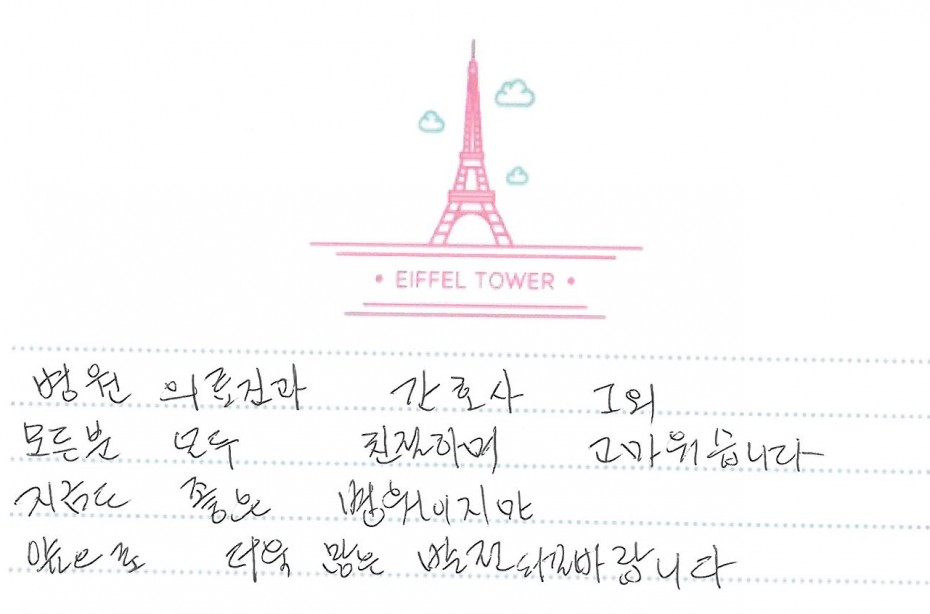 EIFFEL TOWER
병원 의료진과 간호사 그외
모든분 모두 친절하며 고마워습니다
지금도 좋은 병원이지만
앞으로 더욱 많은 발전되길바랍니다